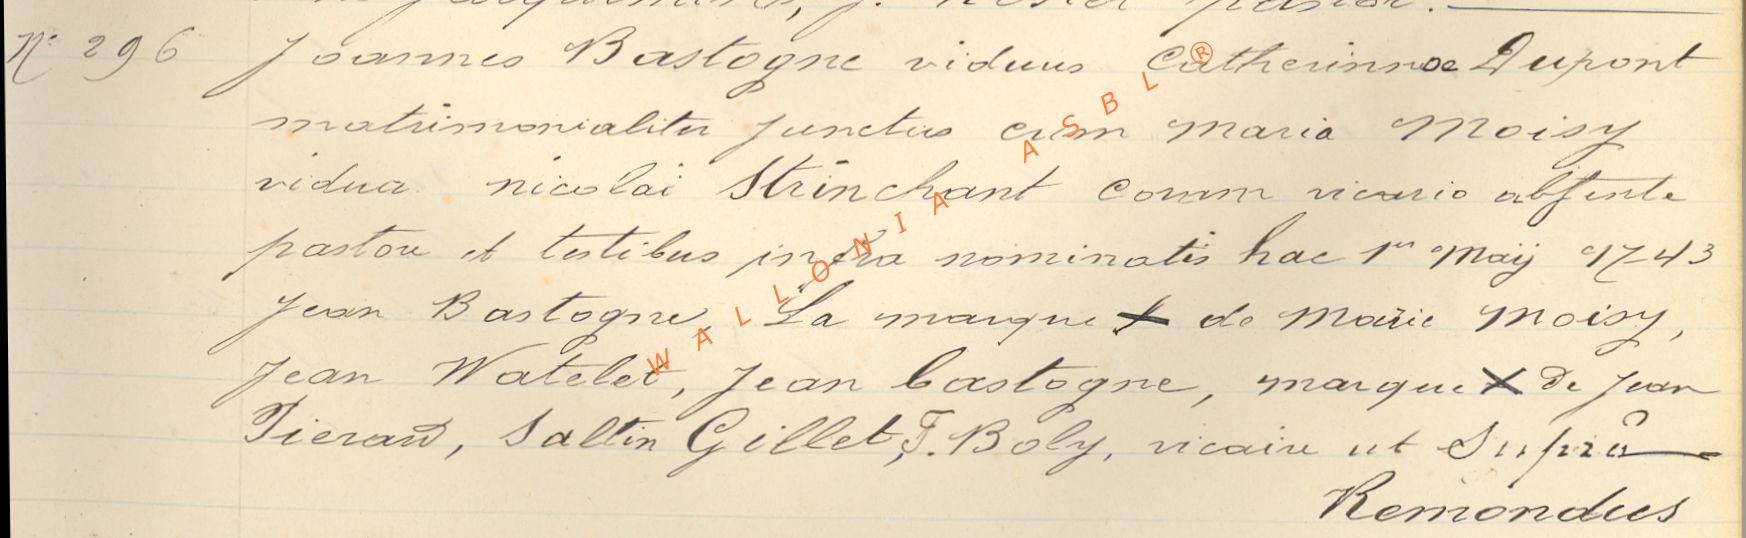 N° 296 Joannes Bastogne viduus Catherinnae Dupont
matrimonialiter junctus cum Maria Moisy
vidua nicolai Strinchant coram vicario absente
pastore et testibus infra nominatis hac 1a Maij 1743
Jean Bastogne, La marque X de Marie Moisy,
Jean Watelet, Jean bastogne, marque X De Jean
Pierard, Saltin Gillet, F. Boly, vicaire ut Suprâ
Remondus
WALLONIA ASBL ®